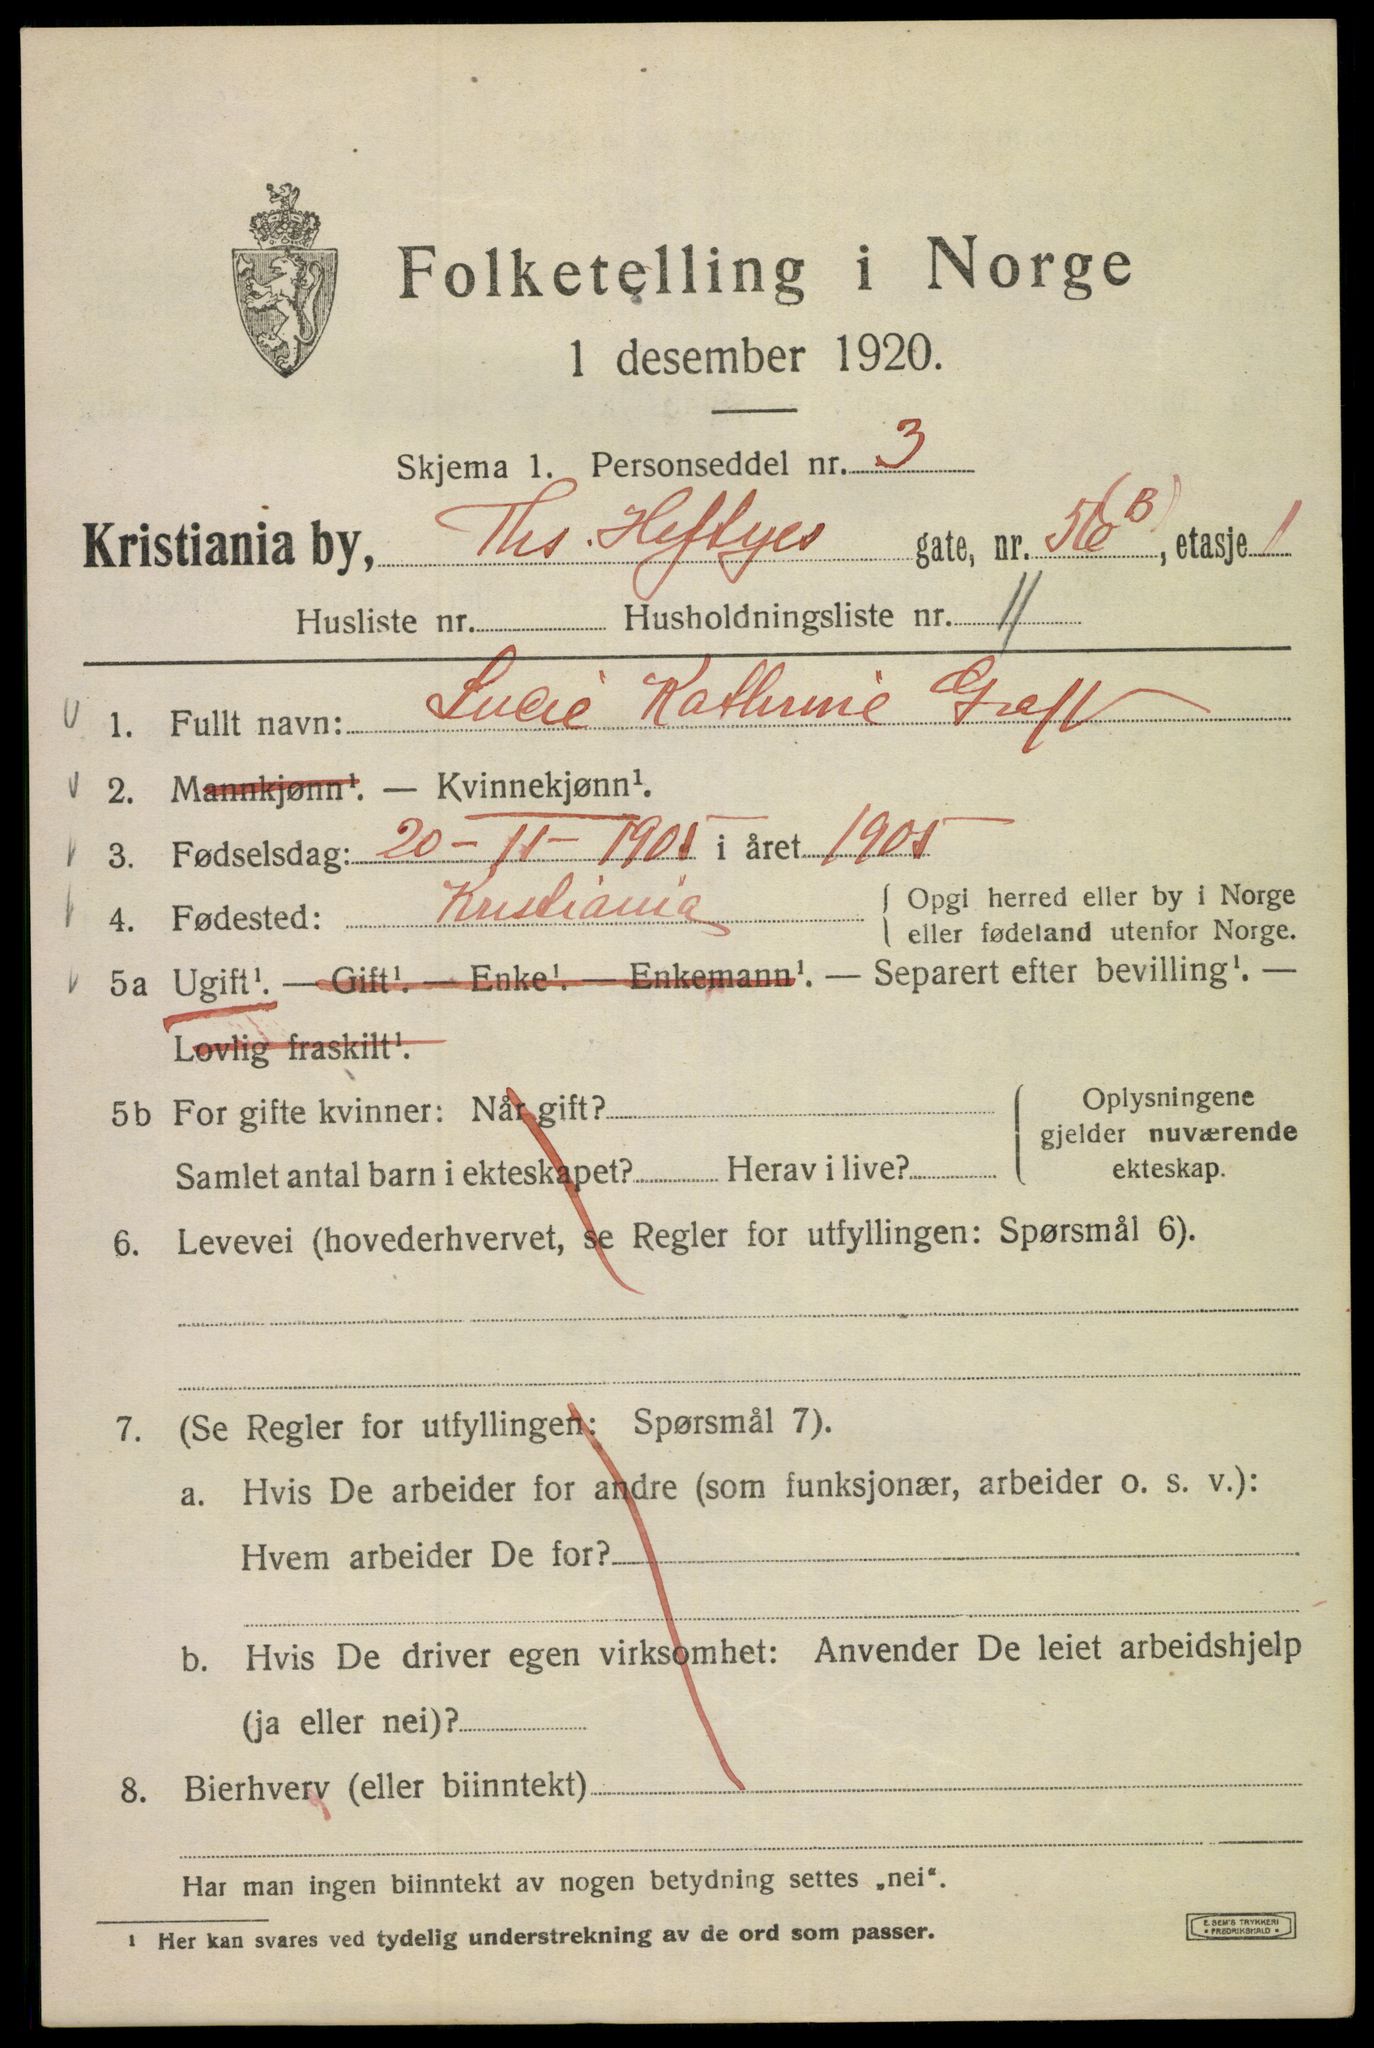 Folketelling i Norge
1 desember 1920.
Skjema 1. Personseddel nr. 3
Kristiania by, Ths. Heftyes gate, nr. 56 B, etasje 1
Husliste nr. Husholdningsliste nr. 11
1. Fullt navn: Lucie Kathrine Graff
2. Mannkjønn¹. — Kvinnekjønn¹.
3. Fødselsdag: 20-11-1905 i året 1905
4. Fødested: Kristiania { Opgi herred eller by i Norge
eller fødeland utenfor Norge.
5a Ugift¹. — Gift¹. — Enke¹. — Enkemann¹. — Separert efter bevilling¹. —
Lovlig fraskilt¹.
5b For gifte kvinner: Når gift? { Oplysningene
gjelder nuværende
Samlet antal barn i ekteskapet? Herav i live? ekteskap.
6. Levevei (hovederhvervet, se Regler for utfyllingen: Spørsmål 6).
7. (Se Regler for utfyllingen: Spørsmål 7).
a. Hvis De arbeider for andre (som funksjonær, arbeider o. s. v.):
Hvem arbeider De for?
b. Hvis De driver egen virksomhet: Anvender De leiet arbeidshjelp
(ja eller nei)?
8. Bierhverv (eller biinntekt)
Har man ingen biinntekt av nogen betydning settes „nei“.
¹ Her kan svares ved tydelig understrekning av de ord som passer.
E. SEM'S TRYKKERI
• FREDRIKSHALD •